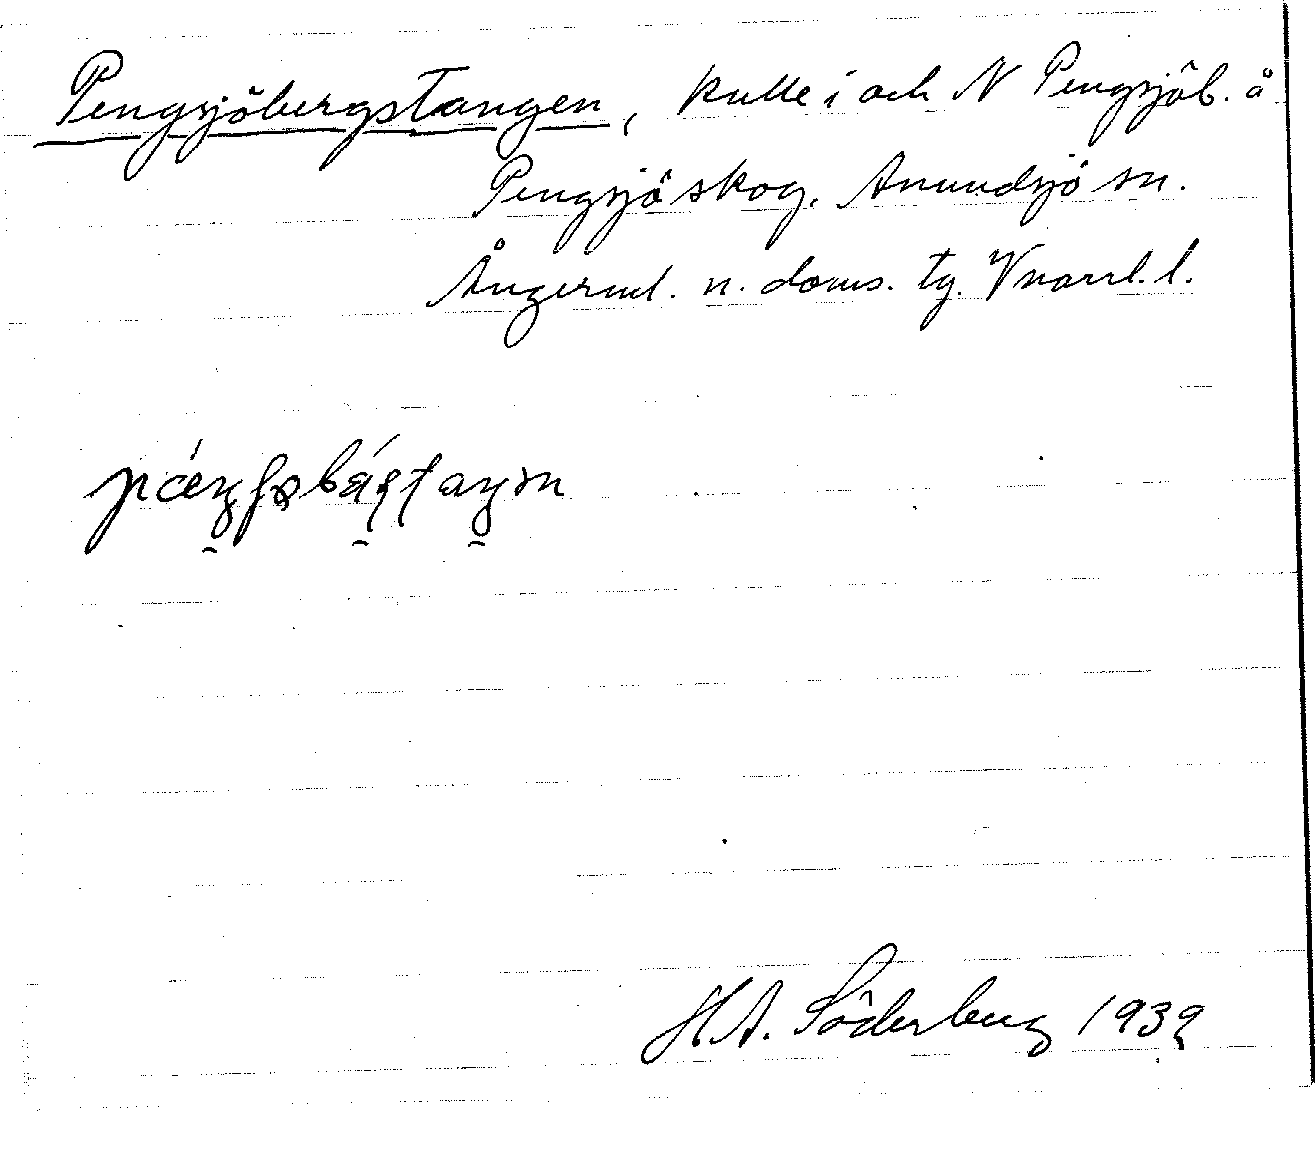 Pengsjöbergstangen, kulle i och N Pengsjöb. å
Pengsjö skog. Anundsjö sn.
Ångerml. n. doms. tg. Vnorrl. l.
H.A. Söderberg 1939